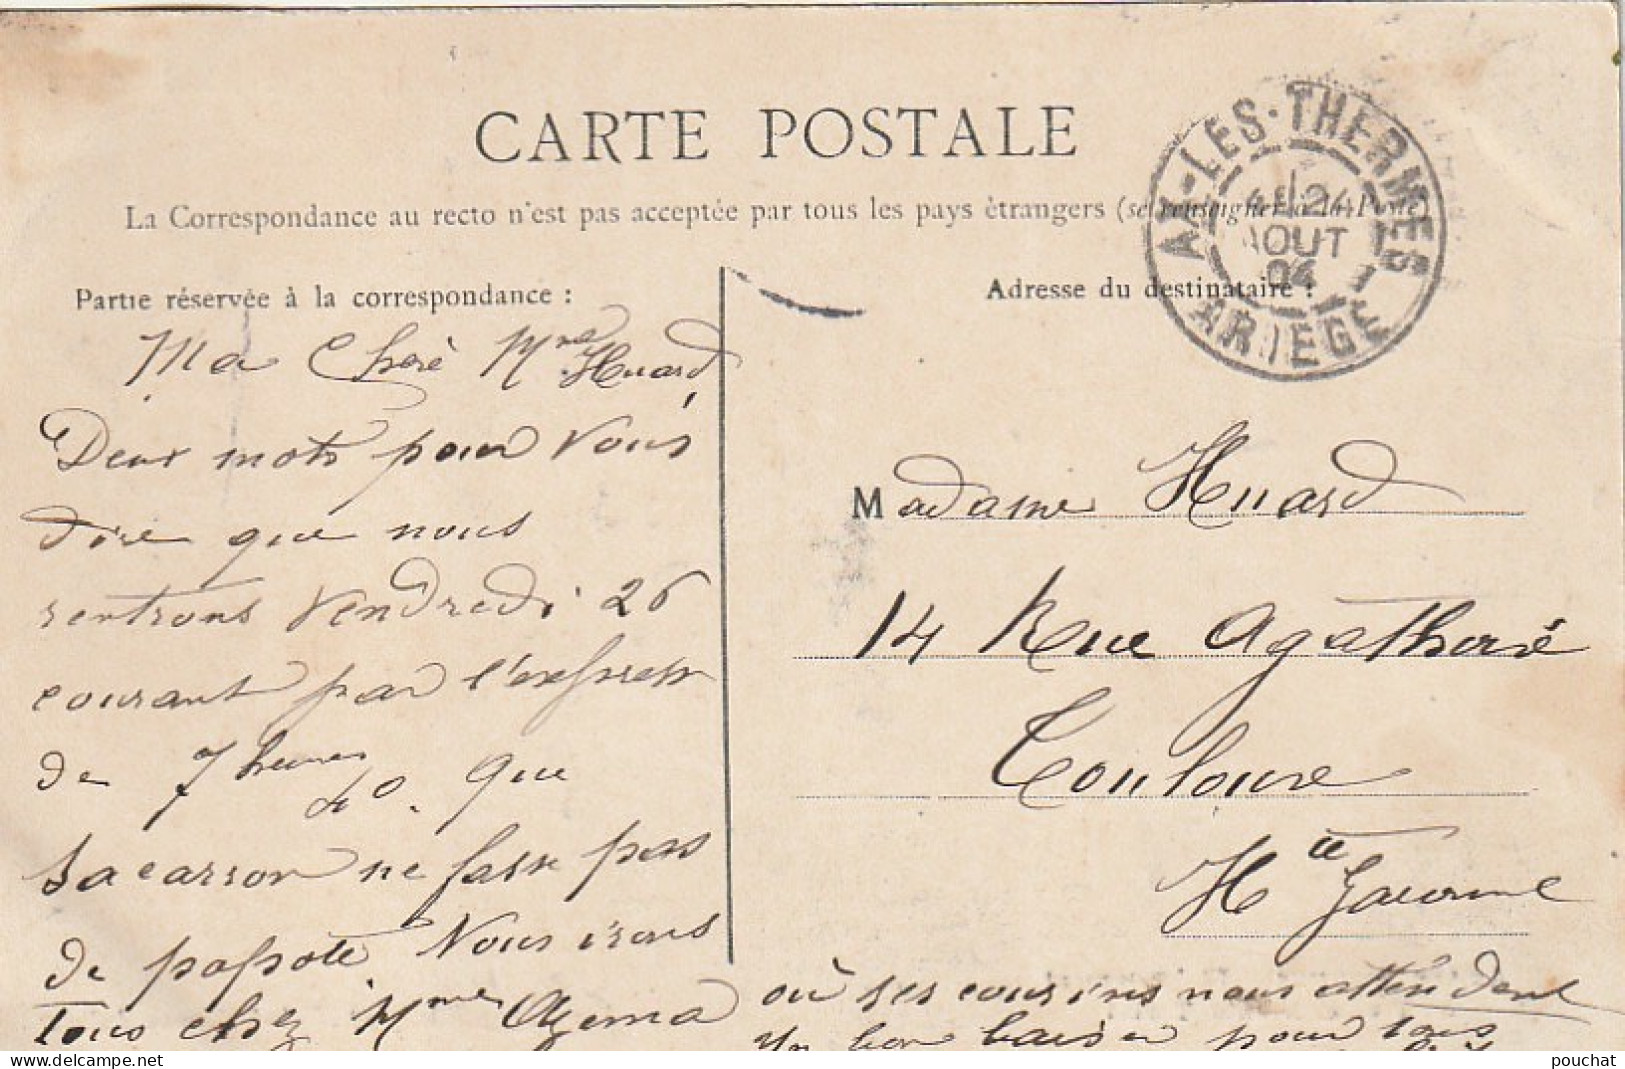 CARTE POSTALE
La Correspondance au recto n'est pas acceptée par tous les pays étrangers (se renseigner à la Poste)
AX-LES-THERMES
24
AOUT
04
ARIEGE
Partie réservée à la correspondance :
Ma Chère Mme Huard
Deux mots pour vous
dire que nous
rentrons Vendredi 26
courant par l'express
de 7 heures 40. que
Sacarron ne fasse pas
de popote. Nous irons
tous chez Mme Azema
où ses cousins nous attendent
un bon baiser pour tous
Adresse du destinataire :
Madame Huard
14 Rue Agathoise
Toulouse
Hte Garonne
pouchat